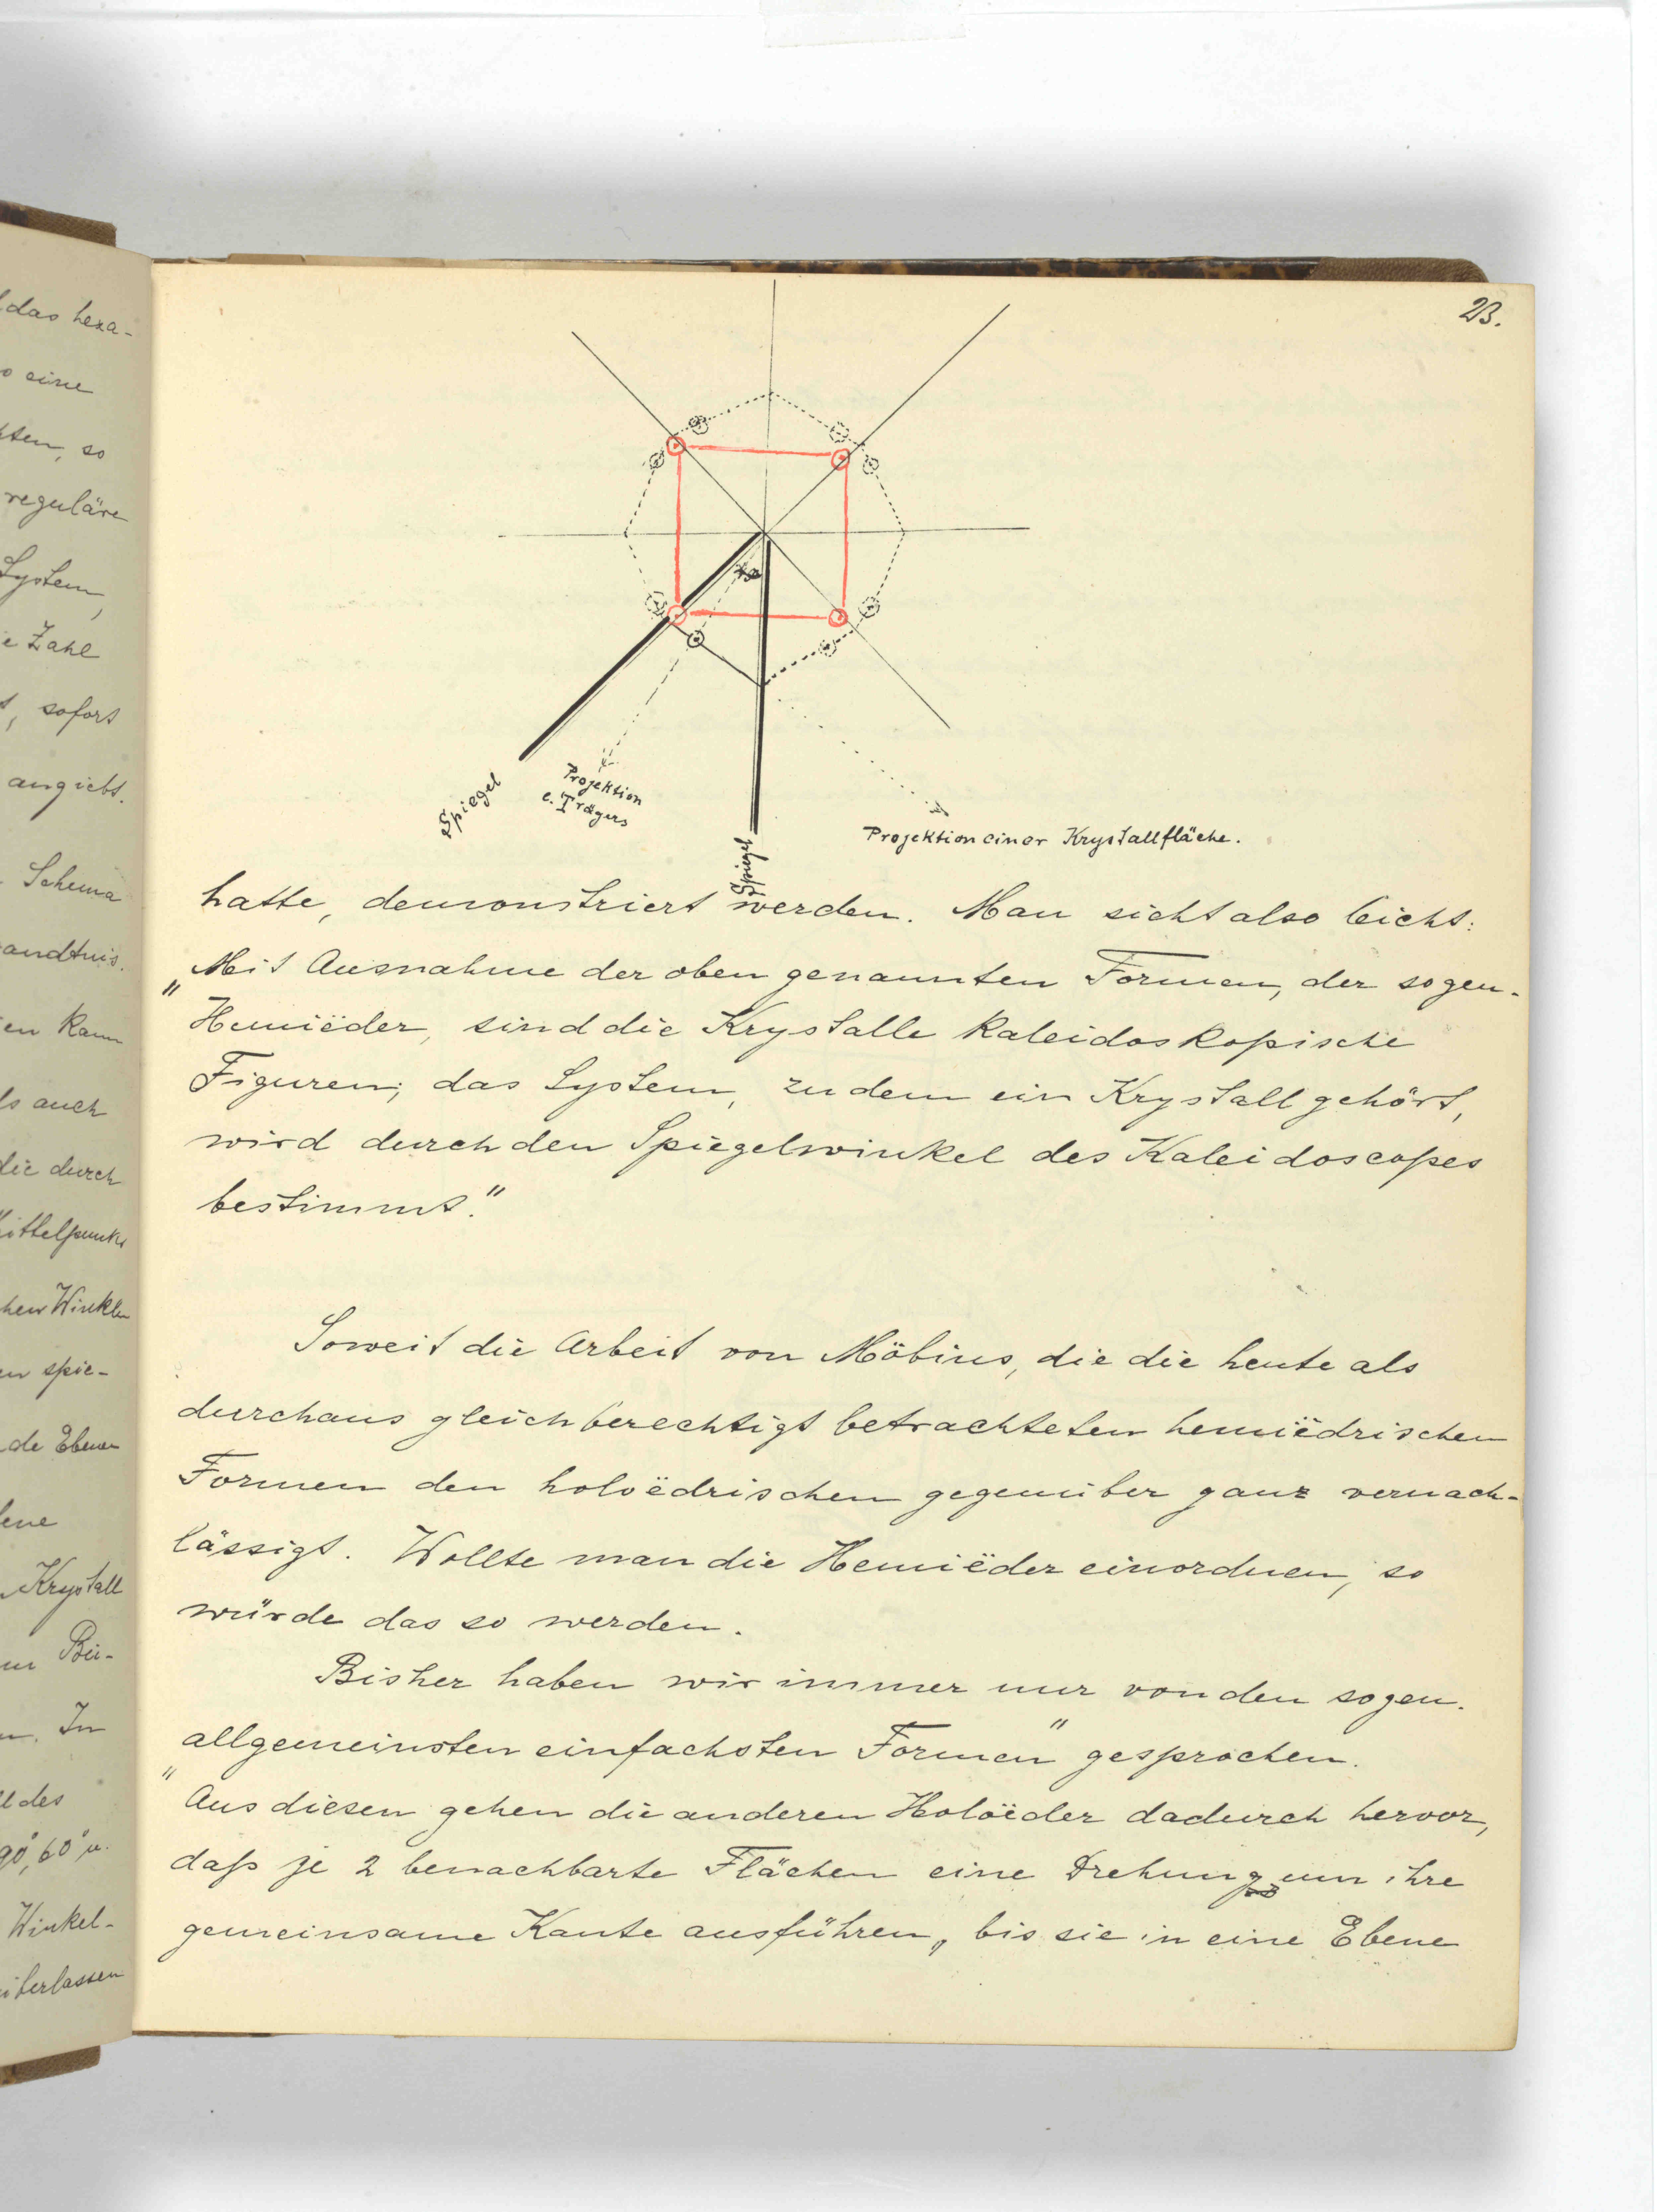 das hexa-
eine
so
reguläre
System,
Zahl
, sofort
angiebt.
Schema
kann
auch
die durch
Winkeln
spie-
de Ebenen
Krystall
In
des
90°, 60° u.
Winkel-
23.
Spiegel
Projektion
e. Trägers
Spiegel
Projektion einer Krystallfläche.
hatte, demonstriert werden. Man sieht also leicht:
„Mit Ausnahme der oben genannten Formen, der sogen.
Hemiëder, sind die Krystalle kaleidoskopische
Figuren; das System, zu dem ein Krystall gehört,
wird durch den Spiegelwinkel des Kaleidoscopes
bestimmt."
Soweit die Arbeit von Möbius, die die heute als
durchaus gleichberechtigt betrachteten hemiëdrischen
Formen den holoëdrischen gegenüber ganz vernach-
lässigt. Wollte man die Hemiëder einordnen, so
würde das so werden.
Bisher haben wir immer nur von den sogen.
„allgemeinsten einfachsten Formen" gesprochen.
Aus diesen gehen die anderen Holoëder dadurch hervor,
daß je 2 benachbarte Flächen eine Drehung um ihre
gemeinsame Kante ausführen, bis sie in eine Ebene